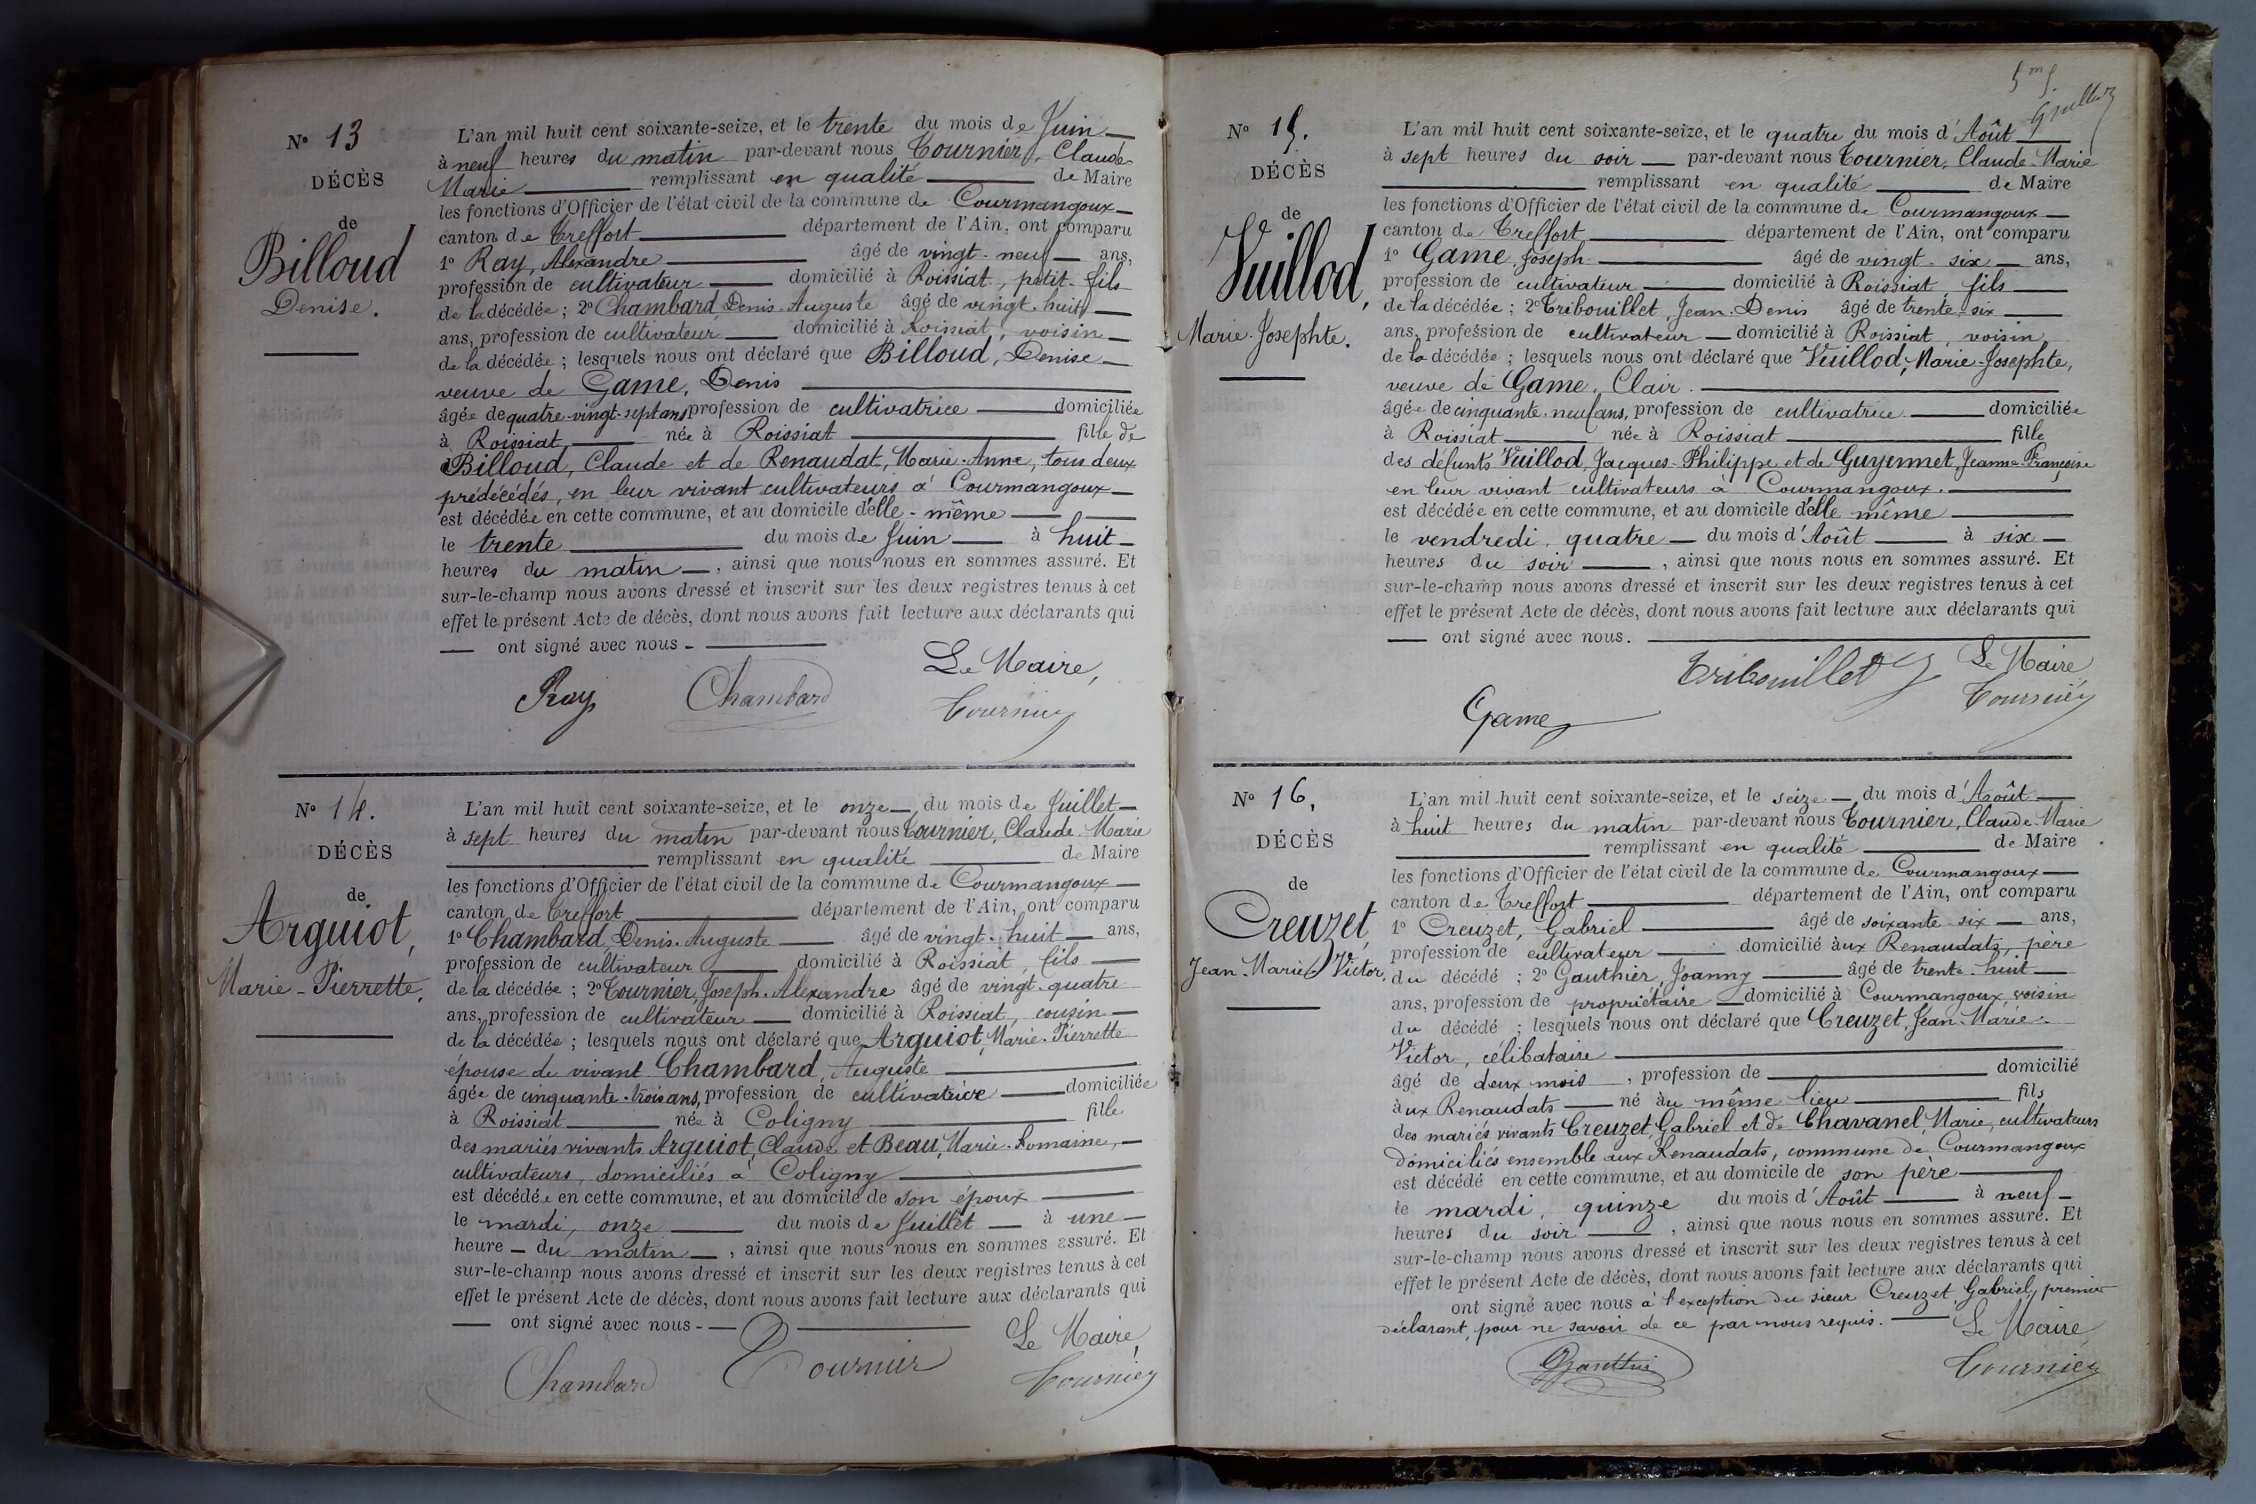 Nº 13
DÉCÈS
de
Billoud
Denise.
L'an mil huit cent soixante-seize, et le trente du mois de Juin
à neuf heures du matin par-devant nous Tournier, Claude
Marie remplissant en qualité de Maire
les fonctions d'Officier de l'état civil de la commune de Courmangoux
canton de Treffort département de l'Ain, ont comparu
1º Ray, Alexandre âgé de vingt-neuf ans,
profession de cultivateur domicilié à Roissiat, petit-fils
de la décédée ; 2º Chambard, Denis-Auguste âgé de vingt-huit
ans, profession de cultivateur domicilié à Roissiat, voisin
de la décédée ; lesquels nous ont déclaré que Billoud, Denise
veuve de Game, Denis
âgée de quatre-vingt-sept ans profession de cultivatrice domiciliée
à Roissiat, née à Roissiat fille de
Billoud, Claude et de Renaudat, Marie-Anne, tous deux
prédécédés, en leur vivant cultivateurs à Courmangoux
est décédée en cette commune, et au domicile d'elle-même
le trente du mois de Juin à huit
heures du matin, ainsi que nous nous en sommes assuré. Et
sur-le-champ nous avons dressé et inscrit sur les deux registres tenus à cet
effet le présent Acte de décès, dont nous avons fait lecture aux déclarants qui
ont signé avec nous.
Le Maire,
Ray Chambard Tournier
Nº 14.
DÉCÈS
de
Arguiot,
Marie-Pierrette.
L'an mil huit cent soixante-seize, et le onze du mois de Juillet
à sept heures du matin par-devant nous Tournier, Claude-Marie
remplissant en qualité de Maire
les fonctions d'Officier de l'état civil de la commune de Courmangoux
canton de Treffort département de l'Ain, ont comparu
1º Chambard, Denis-Auguste âgé de vingt-huit ans,
profession de cultivateur domicilié à Roissiat, fils
de la décédée ; 2º Tournier, Joseph-Alexandre âgé de vingt-quatre
ans, profession de cultivateur domicilié à Roissiat, cousin
de la décédée ; lesquels nous ont déclaré que Arguiot, Marie-Pierrette
épouse de vivant Chambard, Auguste
âgée de cinquante-trois ans, profession de cultivatrice domiciliée
à Roissiat née à Coligny fille
des mariés vivants Arguiot, Claude et Beau, Marie-Romaine,
cultivateurs, domiciliés à Coligny
est décédée en cette commune, et au domicile de son époux
le mardi, onze du mois de Juillet à une
heure du matin, ainsi que nous nous en sommes assuré. Et
sur-le-champ nous avons dressé et inscrit sur les deux registres tenus à cet
effet le présent Acte de décès, dont nous avons fait lecture aux déclarants qui
ont signé avec nous.
Le Maire,
Chambard Tournier Tournier
Nº 15.
DÉCÈS
de
Vuillod,
Marie-Josephte.
L'an mil huit cent soixante-seize, et le quatre du mois d'Août
à sept heures du soir par-devant nous Tournier, Claude-Marie
remplissant en qualité de Maire
les fonctions d'Officier de l'état civil de la commune de Courmangoux
canton de Treffort département de l'Ain, ont comparu
1º Game, Joseph âgé de vingt-six ans,
profession de cultivateur domicilié à Roissiat, fils
de la décédée ; 2º Tribouillet, Jean-Denis âgé de trente-six
ans, profession de cultivateur domicilié à Roissiat, voisin
de la décédée ; lesquels nous ont déclaré que Vuillod, Marie-Josephte,
veuve de Game, Clair.
âgée de cinquante-neuf ans, profession de cultivatrice domiciliée
à Roissiat née à Roissiat fille
des défunts Vuillod, Jacques-Philippe et de Guyennet, Jeanne-Françoise
en leur vivant cultivateurs à Courmangoux.
est décédée en cette commune, et au domicile d'elle même
le vendredi, quatre du mois d'Août à six
heures du soir, ainsi que nous nous en sommes assuré. Et
sur-le-champ nous avons dressé et inscrit sur les deux registres tenus à cet
effet le présent Acte de décès, dont nous avons fait lecture aux déclarants qui
ont signé avec nous.
Le Maire
Tribouillet Tournier
Game
Nº 16.
DÉCÈS
de
Creuzet,
Jean-Marie-Victor.
L'an mil huit cent soixante-seize, et le seize du mois d'Août
à huit heures du matin par-devant nous Tournier, Claude-Marie
remplissant en qualité de Maire
les fonctions d'Officier de l'état civil de la commune de Courmangoux
canton de Treffort département de l'Ain, ont comparu
1º Creuzet, Gabriel âgé de soixante-six ans,
profession de cultivateur domicilié aux Renaudats, père
du décédé ; 2º Gauthier, Joanny âgé de trente-huit
ans, profession de propriétaire domicilié à Courmangoux, voisin
du décédé ; lesquels nous ont déclaré que Creuzet, Jean-Marie-
Victor, célibataire
âgé de deux mois, profession de domicilié
aux Renaudats né au même lieu fils
des mariés vivants Creuzet, Gabriel et de Chavanel, Marie, cultivateurs
domiciliés ensemble aux Renaudats, commune de Courmangoux
est décédé en cette commune, et au domicile de son père
le mardi, quinze du mois d'Août à neuf
heures du soir, ainsi que nous nous en sommes assuré. Et
sur-le-champ nous avons dressé et inscrit sur les deux registres tenus à cet
effet le présent Acte de décès, dont nous avons fait lecture aux déclarants qui
ont signé avec nous à l'exception du sieur Creuzet, Gabriel, premier
déclarant, pour ne savoir de ce par nous requis.
Le Maire,
Gauthier Tournier